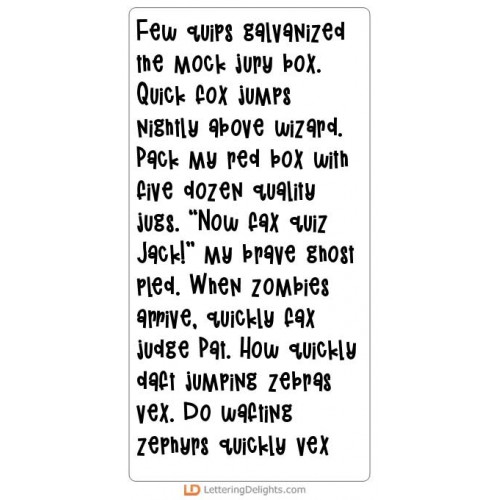 Few quips galvanized
the mock jury box.
Quick fox jumps
nightly above wizard.
Pack my red box with
five dozen quality
jugs. "Now fax quiz
Jack!" my brave ghost
pled. When zombies
arrive, quickly fax
judge Pat. How quickly
daft jumping zebras
vex. Do wafting
zephyrs quickly vex
LD LetteringDelights.com